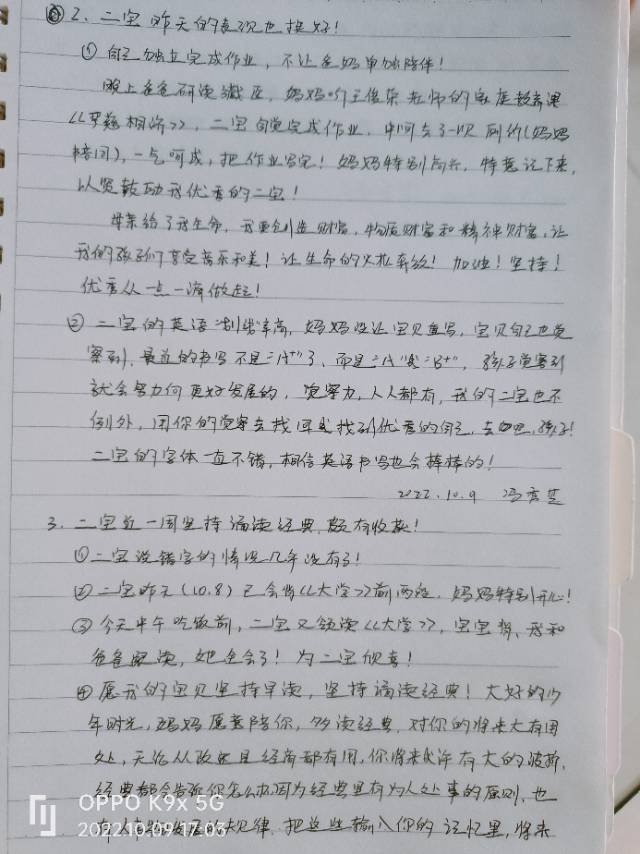 2、二宝昨天的表现也挺好！
①自己独立完成作业，不让爸妈单独陪伴！
晚上爸爸研读，妈妈听王俊荣老师的家庭教育课
《》，二宝自觉完成作业，中间去了一次厕所(妈妈
)，一气呵成，把作业写完！妈妈特别高兴，特意记下来，
以资鼓励我优秀的二宝！
母亲给了我生命，我要创造财富，物质财富和精神财富，让
我的孩子们享受喜乐和美！让生命的火松奔放！加油！坚持！
优秀从一点一滴做起！
②二宝的英语书写，妈妈没让宝贝重写，宝贝自己也觉
察到，最近的书写不是"A+"了，而是"A"或"B+"，孩子觉察到
就会努力向更好发展的，觉察力，人人都有，我的二宝也不
例外，用你的觉察去找回或找到优秀的自己，去吧，孩子！
二宝的字体一直不错，相信英语书写也会棒棒的！
2022.10.9
3、二宝近一周坚持诵读经典，颇有收获！
①二宝说错字的情况几乎没有了！
②二宝昨天(10.8)已会背《大学》前两段，妈妈特别开心！
③今天中午吃饭前，二宝又领读《大学》，宝宝背，我和
爸爸跟读，她全会了！为二宝欣喜！
④愿我的宝贝坚持早读，坚持诵读经典！大好的少
年时光，妈妈愿意陪你，多读经典，对你的将来大有用
处，无论从政也且经商都有用，你将来或许有大的波折，
经典都会告诉你怎么办，因为经典里有为人处事的原则，也
有的规律，把这些输入你的记忆里，将来
OPPO K9x 5G
2022.10.09 17:03